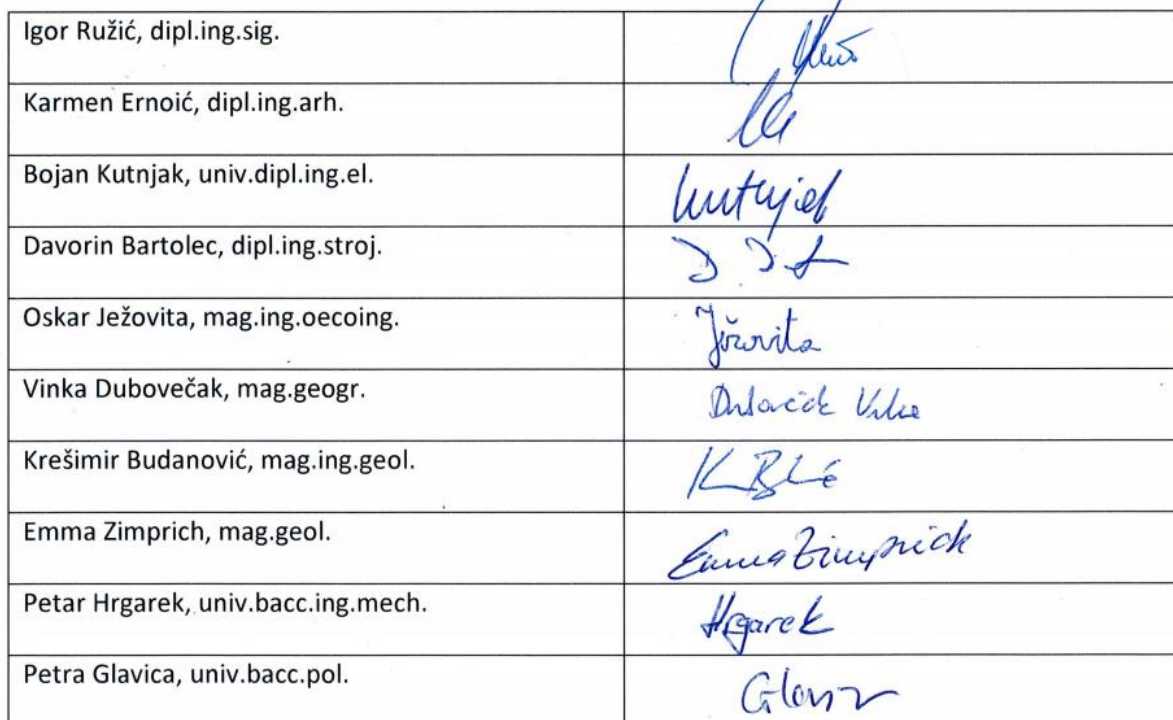 Igor Ružić, dipl.ing.sig.
Karmen Ernoić, dipl.ing.arh.
Bojan Kutnjak, univ.dipl.ing.el. Kutnjak
Davorin Bartolec, dipl.ing.stroj.
Oskar Ježovita, mag.ing.oecoing. Ježovita
Vinka Dubovečak, mag.geogr.
Krešimir Budanović, mag.ing.geol.
Emma Zimprich, mag.geol. Emma Zimprich
Petar Hrgarek, univ.bacc.ing.mech. Hrgarek
Petra Glavica, univ.bacc.pol.